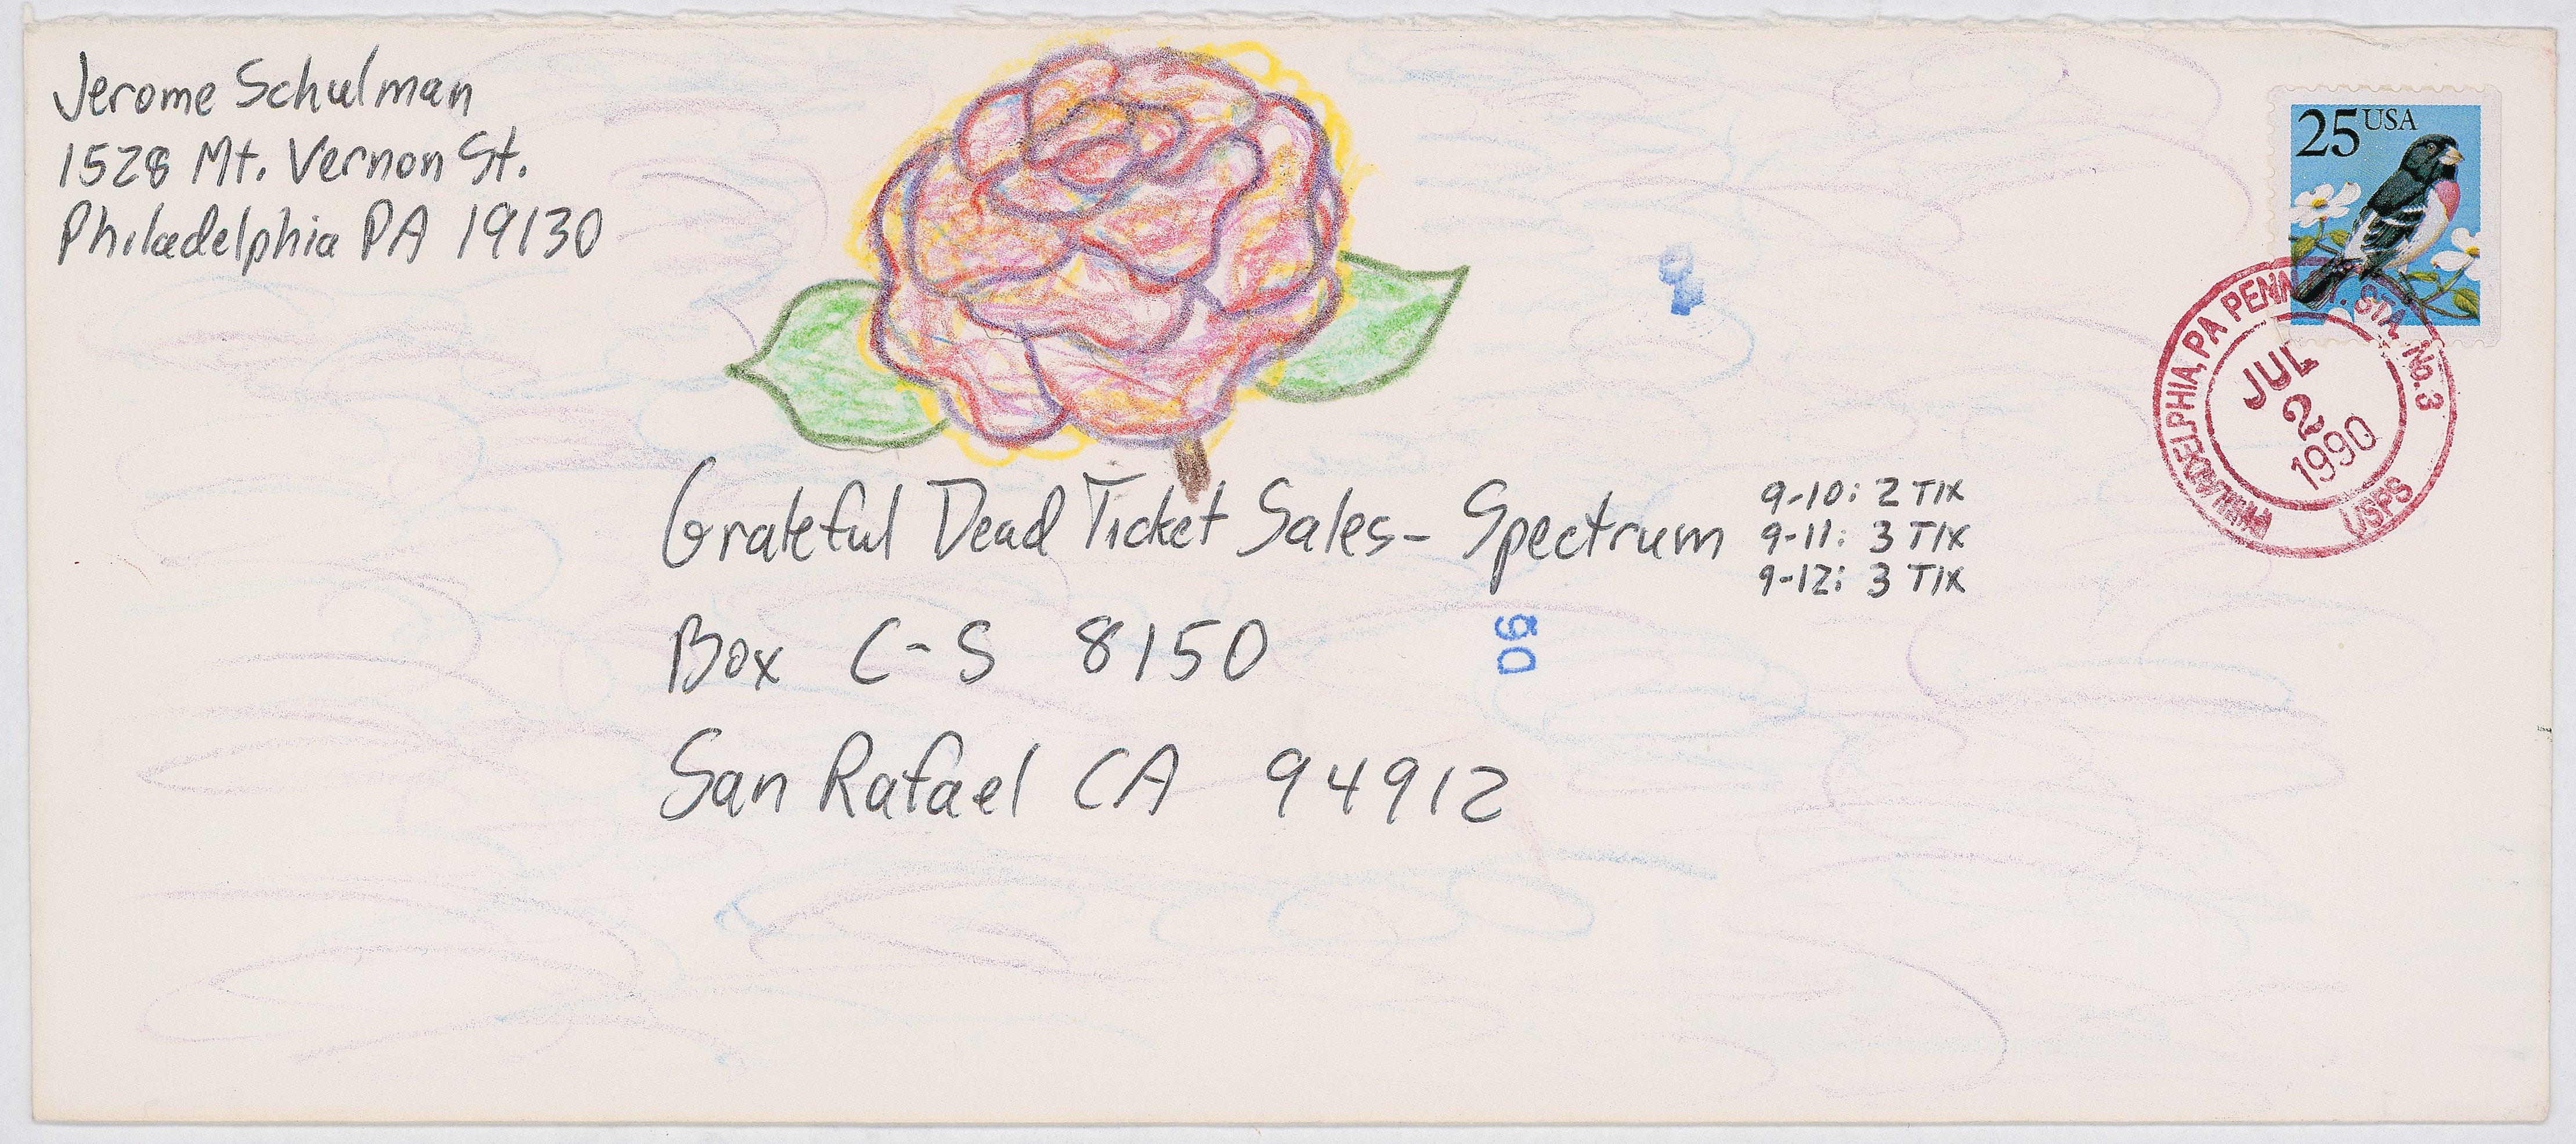 Jerome Schulman
1528 Mt. Vernon St.
Philadelphia PA 19130
25 USA
PHILADELPHIA, PA PENN STA. No. 3
USPS
JUL
2
1990
Grateful Dead Ticket Sales- Spectrum
9-10: 2 TIX
9-11: 3 TIX
9-12: 3 TIX
Box C-S 8150
San Rafael CA 94912